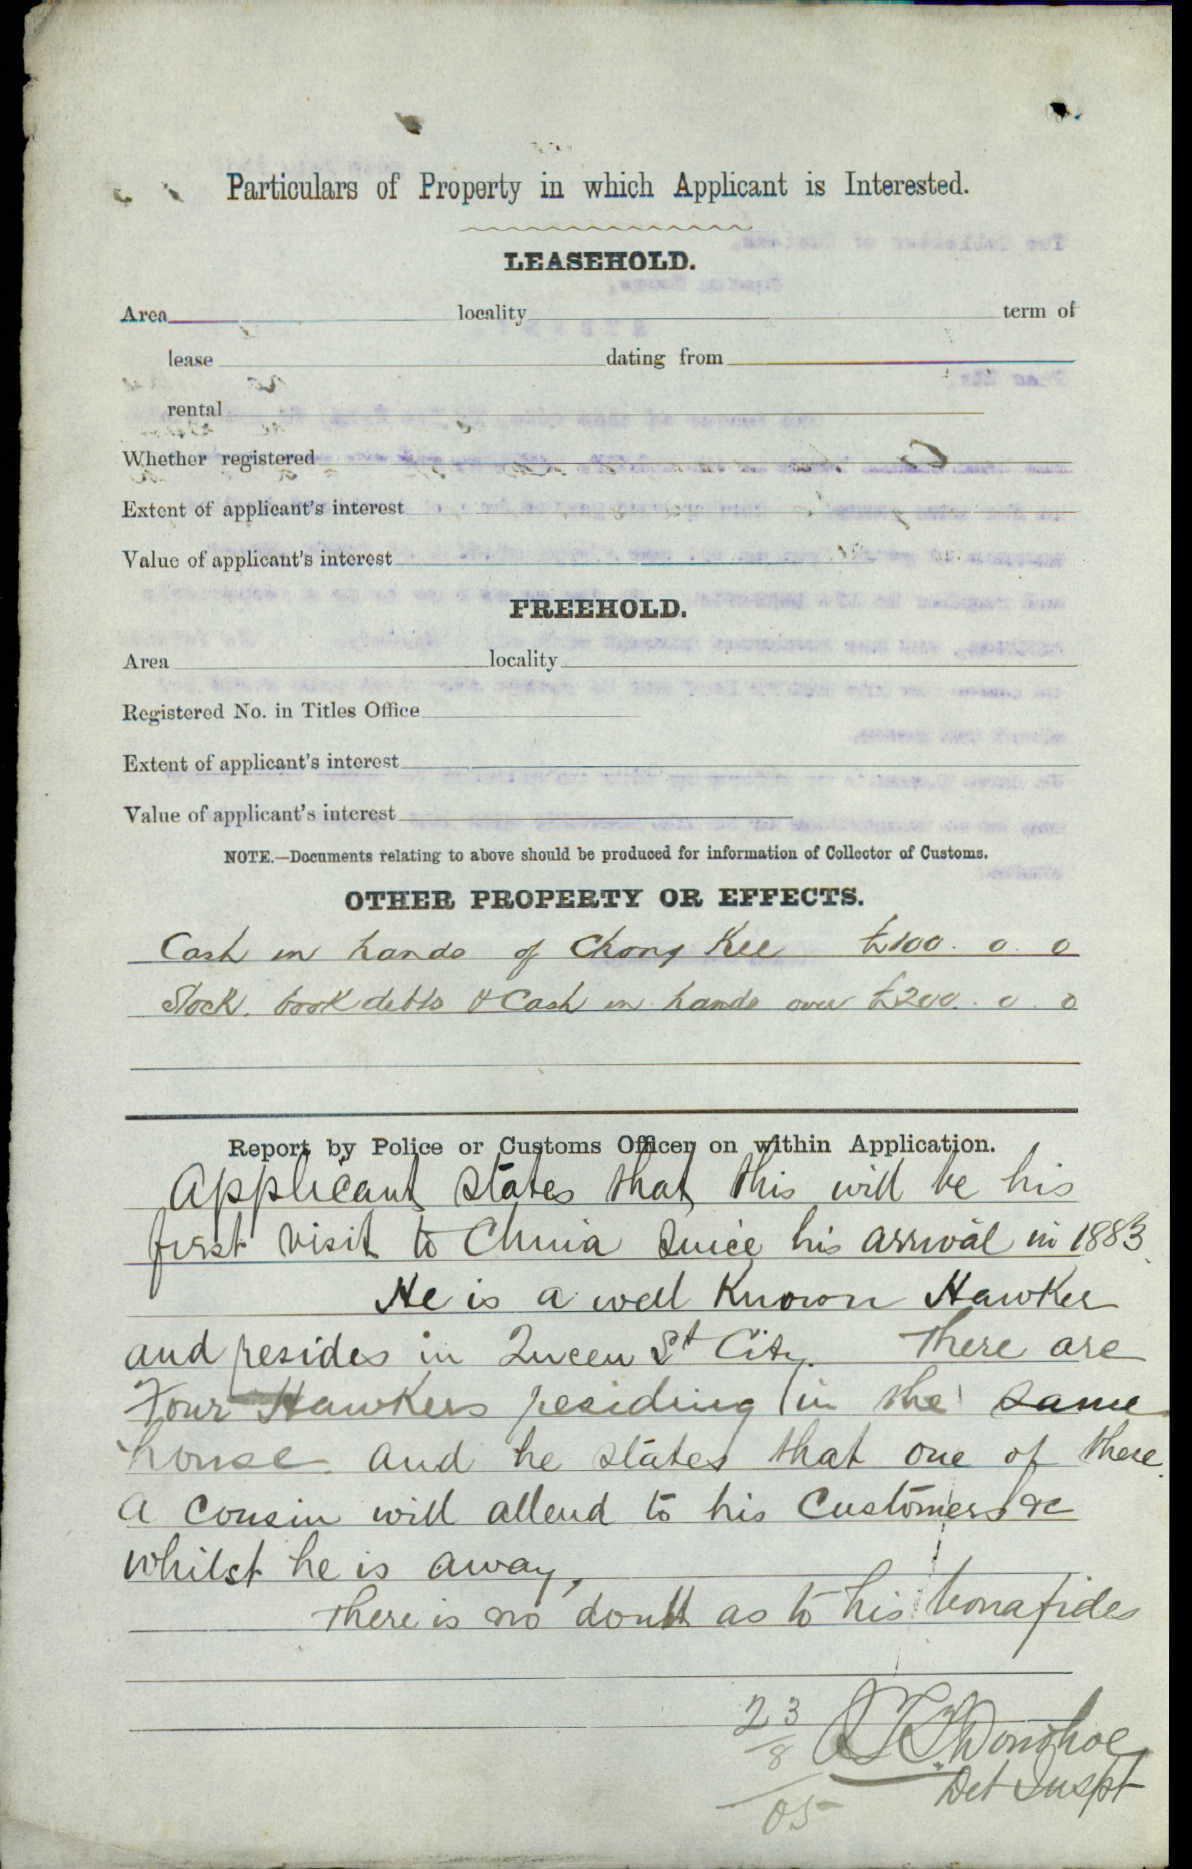 Particulars of Property in which Applicant is Interested.
LEASEHOLD.
Area locality term of
lease dating from
rental
Whether registered
Extent of applicant's interest
Value of applicant's interest
FREEHOLD.
Area locality
Registered No. in Titles Office
Extent of applicant's interest
Value of applicant's interest
NOTE.—Documents relating to above should be produced for information of Collector of Customs.
OTHER PROPERTY OR EFFECTS.
Cash in hands of Chong Kee £100. 0. 0
Stock. book debts & Cash in hands over £200. 0. 0
Report by Police or Customs Officer on within Application.
Applicant states that this will be his
first visit to China since his arrival in 1883.
He is a well Known Hawker
and resides in Queen St City. There are
Four Hawkers residing in the same
house and he states that one of these
a Cousin will attend to his Customers &c
whilst he is away,
There is no doubt as to his bonafides
23/8/05 Donohoe
Det Inspt